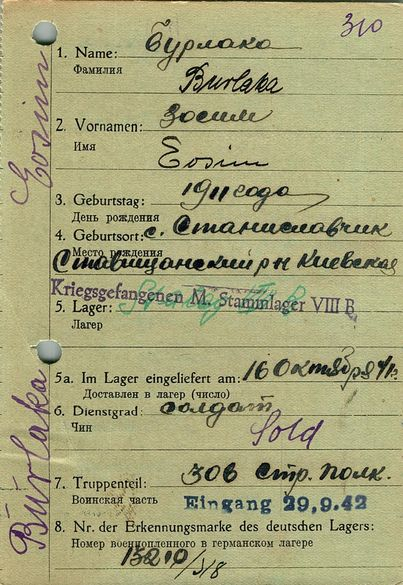 310
1. Name: Бурлака
Фамилия
Burlaka
2. Vornamen: Зосим
Имя
Eosim
3. Geburtstag: 1911 года
День рождения
4. Geburtsort: с. Станиславчик
Место рождения
Ставищанский р-н Киевская
Kriegsgefangenen M. Stammlager VIII B
5. Lager: Stalag
Лагерь
5a. Im Lager eingeliefert am: 16 Октября 41г.
Доставлен в лагерь (число)
6. Dienstgrad: солдат
Чин
Sold
7. Truppenteil: 306 Стр. полк.
Воинская часть
Eingang 29.9.42
8. Nr. der Erkennungsmarke des deutschen Lagers:
Номер военнопленного в германском лагере
13210/318
Eosim
Burlaka